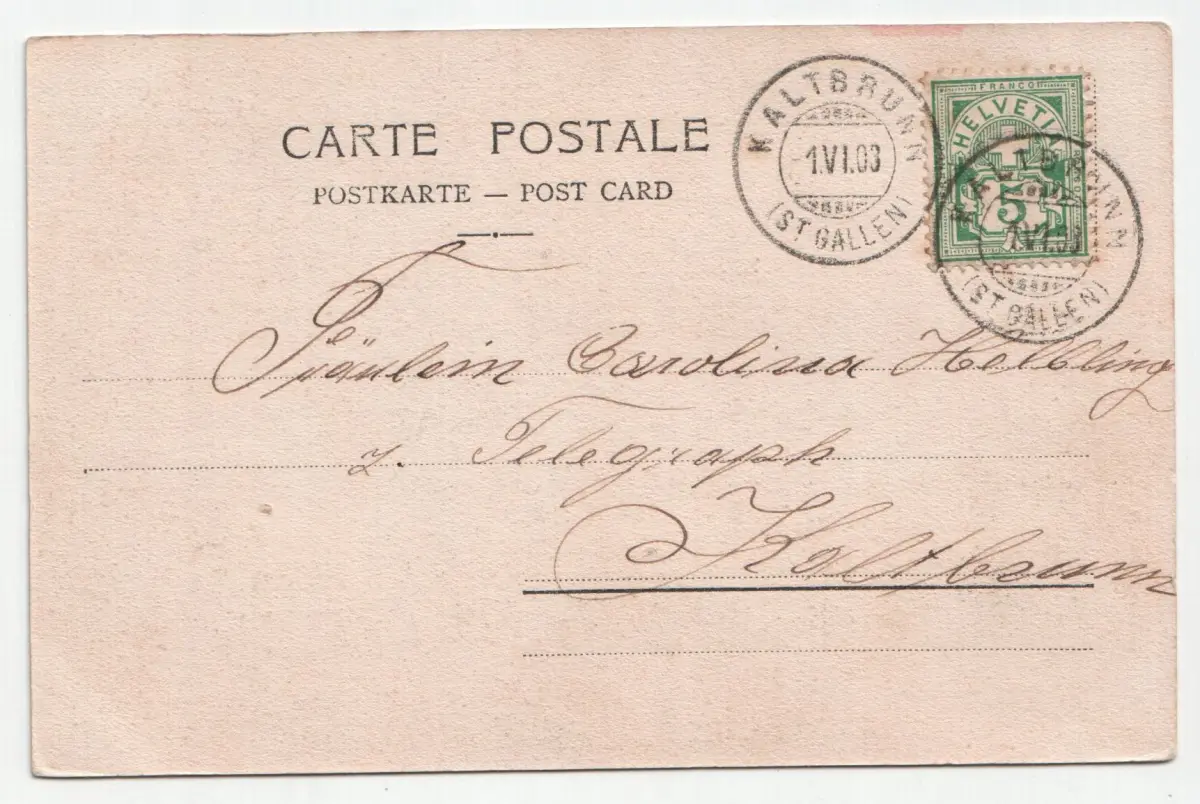 CARTE POSTALE
POSTKARTE — POST CARD
KALTBRUNN
1.VI.03
(ST GALLEN)
FRANCO
HELVETIA
5
KALTBRUNN
1.VI.03
(ST GALLEN)
Fräulein Carolina Helbling
z. Telegraph
Kaltbrunn